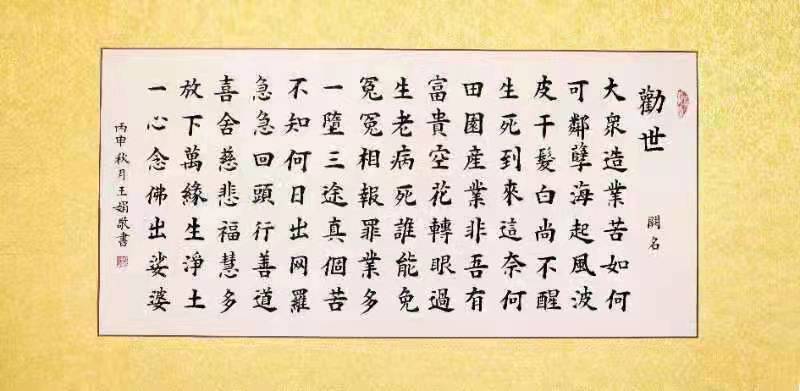 勸世
闕名
大眾造業苦如何
可鄰孽海起風波
皮干髮白尚不醒
生死到來這奈何
田園産業非吾有
富貴空花轉眼過
生老病死誰能免
冤冤相報罪業多
一墮三途真個苦
不知何日出网羅
急急回頭行善道
喜舍慈悲福慧多
放下萬緣生淨土
一心念佛出娑婆
丙申秋月王娟敬書